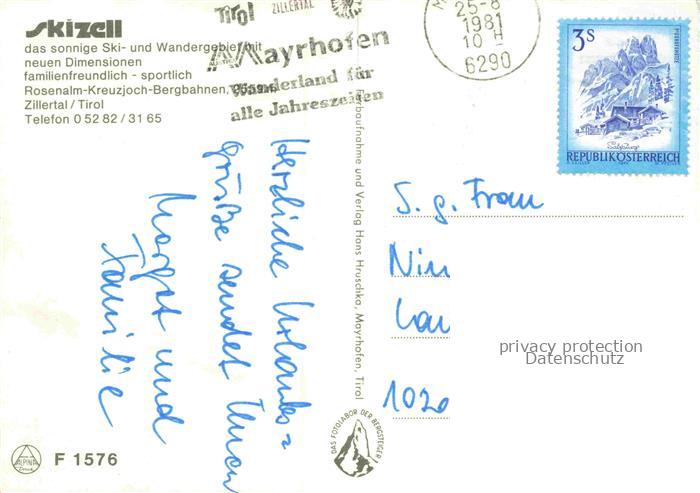 skizell
das sonnige Ski- und Wandergebiet mit
neuen Dimensionen
familienfreundlich - sportlich
Rosenalm-Kreuzjoch-Bergbahnen,
Zillertal / Tirol
Telefon 0 52 82 / 31 65
Tirol
ZILLERTAL
Mayrhofen
Wanderland für
alle Jahreszeiten
25-8
1981
10 H
6290
3S
Salzburg
REPUBLIK ÖSTERREICH
Herzliche Urlaubs=
grüße sendet Ihnen
Margst und
Familie
Farbaufnahme und Verlag Hans Hruschka, Mayrhofen, Tirol
S. g. Frau
Nin
Lau
1020
privacy protection
Datenschutz
DAS FOTOLABOR DER BERGSTEIGER
ALPINA
F 1576